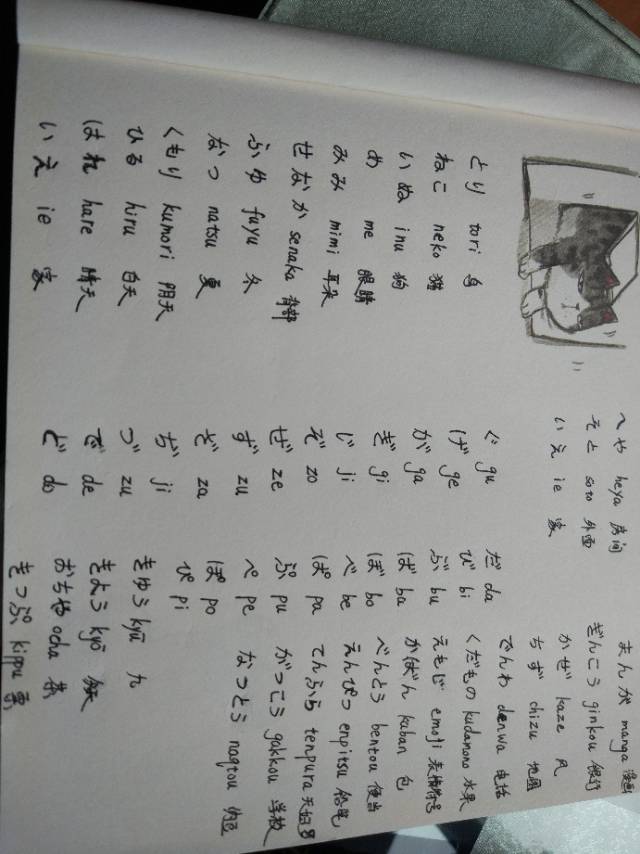 とり tori 鸟
ねこ neko 猫
いぬ inu 狗
め me 眼睛
みみ mimi 耳朵
せなか senaka 背部
ふゆ fuyu 冬
なつ natsu 夏
くもり kumori 阴天
ひる hiru 白天
はれ hare 晴天
いえ ie 家
へや heya 房间
そと soto 外面
いえ ie 家
ぐ gu
げ ge
が ga
ぎ gi
じ ji
ぞ zo
ぜ ze
ず zu
ざ za
ぢ ji
づ zu
で de
ど do
だ da
び bi
ぶ bu
ば ba
ぼ bo
べ be
ぱ pa
ぷ pu
ぺ pe
ぽ po
ぴ pi
まんが manga 漫画
ぎんこう ginkou 银行
かぜ kaze 风
ちず chizu 地图
でんわ denwa 电话
くだもの kudamono 水果
えもじ emoji 表情符号
かばん kaban 包
べんとう bentou 便当
えんぴつ enpitsu 铅笔
てんぷら tenpura 天妇罗
がっこう gakkou 学校
なっとう naqtou 纳豆
きゅう kyū 九
きょう kyō
おちゃ ocha 茶
きっぷ kippu 票